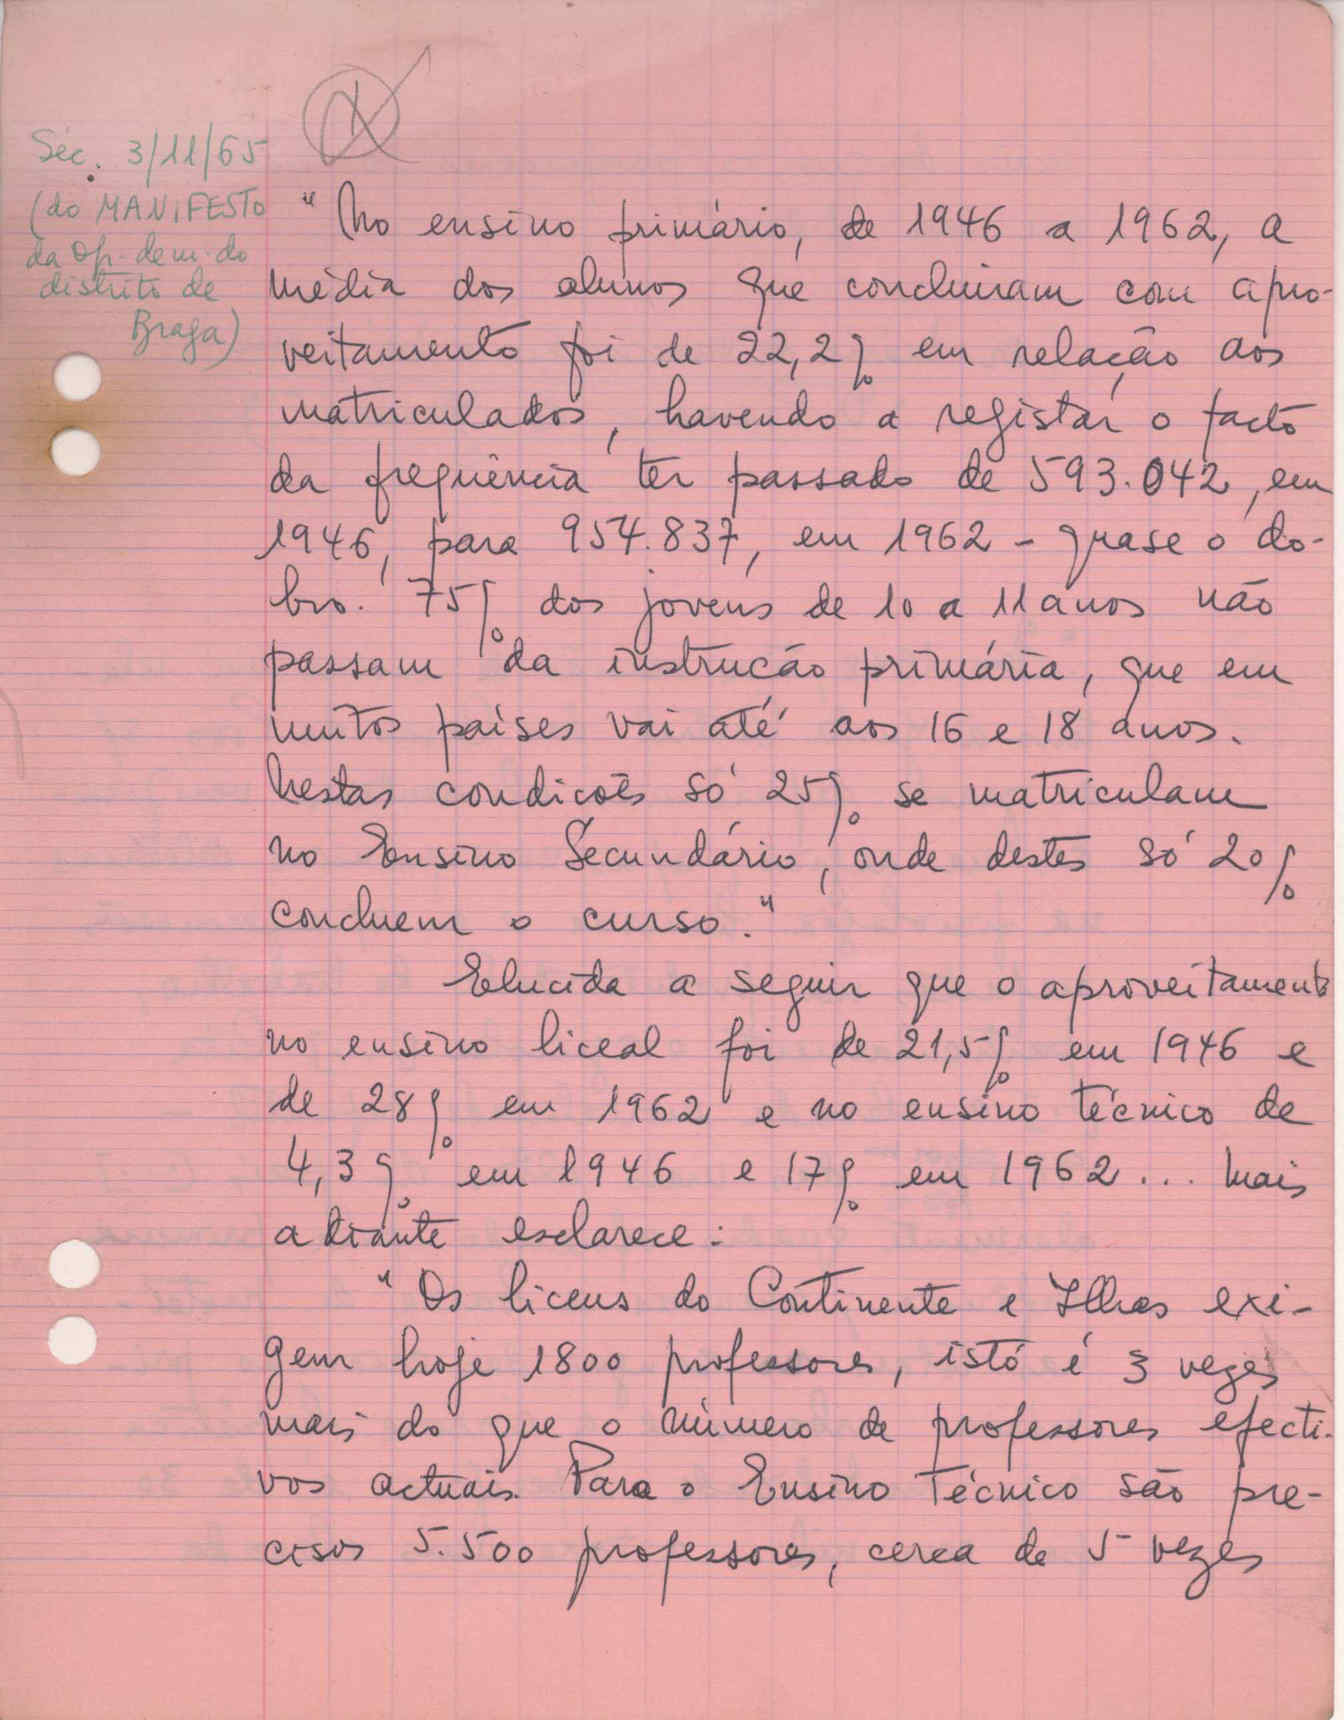 Séc. 3/11/65
(do MANIFESTO
da Op. dem. do
distrito de
Braga)
"No ensino primário, de 1946 a 1962, a
média dos alunos que concluiram com apro-
veitamento foi de 22,2% em relação aos
matriculados, havendo a registar o facto
da frequência ter passado de 593.042, em
1946, para 954.837, em 1962 - quase o do-
bro. 75% dos jovens de 10 a 11 anos não
passam da instrucão primária, que em
muitos países vai até aos 16 e 18 anos.
Nestas condicões só 25% se matriculam
no Ensino Secundário, onde destes só 20%
concluem o curso."
Elucida a seguir que o aproveitamento
no ensino liceal foi de 21,5% em 1946 e
de 28% em 1962 e no ensino técnico de
4,3% em 1946 e 17% em 1962... Mais
adiante esclarece:
"Os liceus do Continente e Ilhas exi-
gem hoje 1800 professores, isto é 3 vezes
mais do que o número de professores efecti-
vos actuais. Para o Ensino Técnico são pre-
cisos 5.500 professores, cerca de 5 vezes